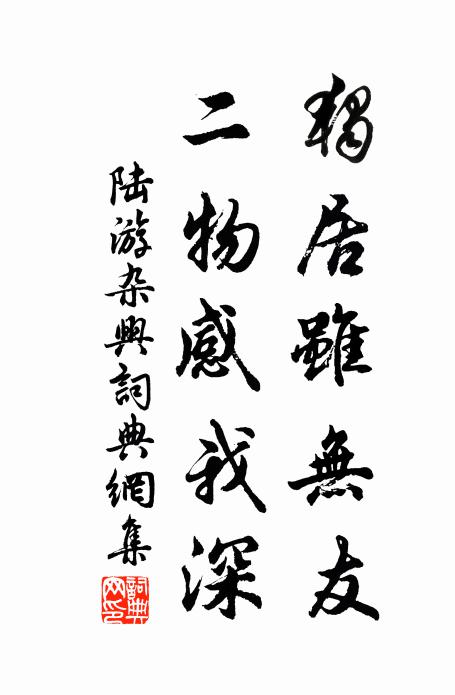 獨居雖無友
二物感我深
陸游杂興詞典網集
詞典網印